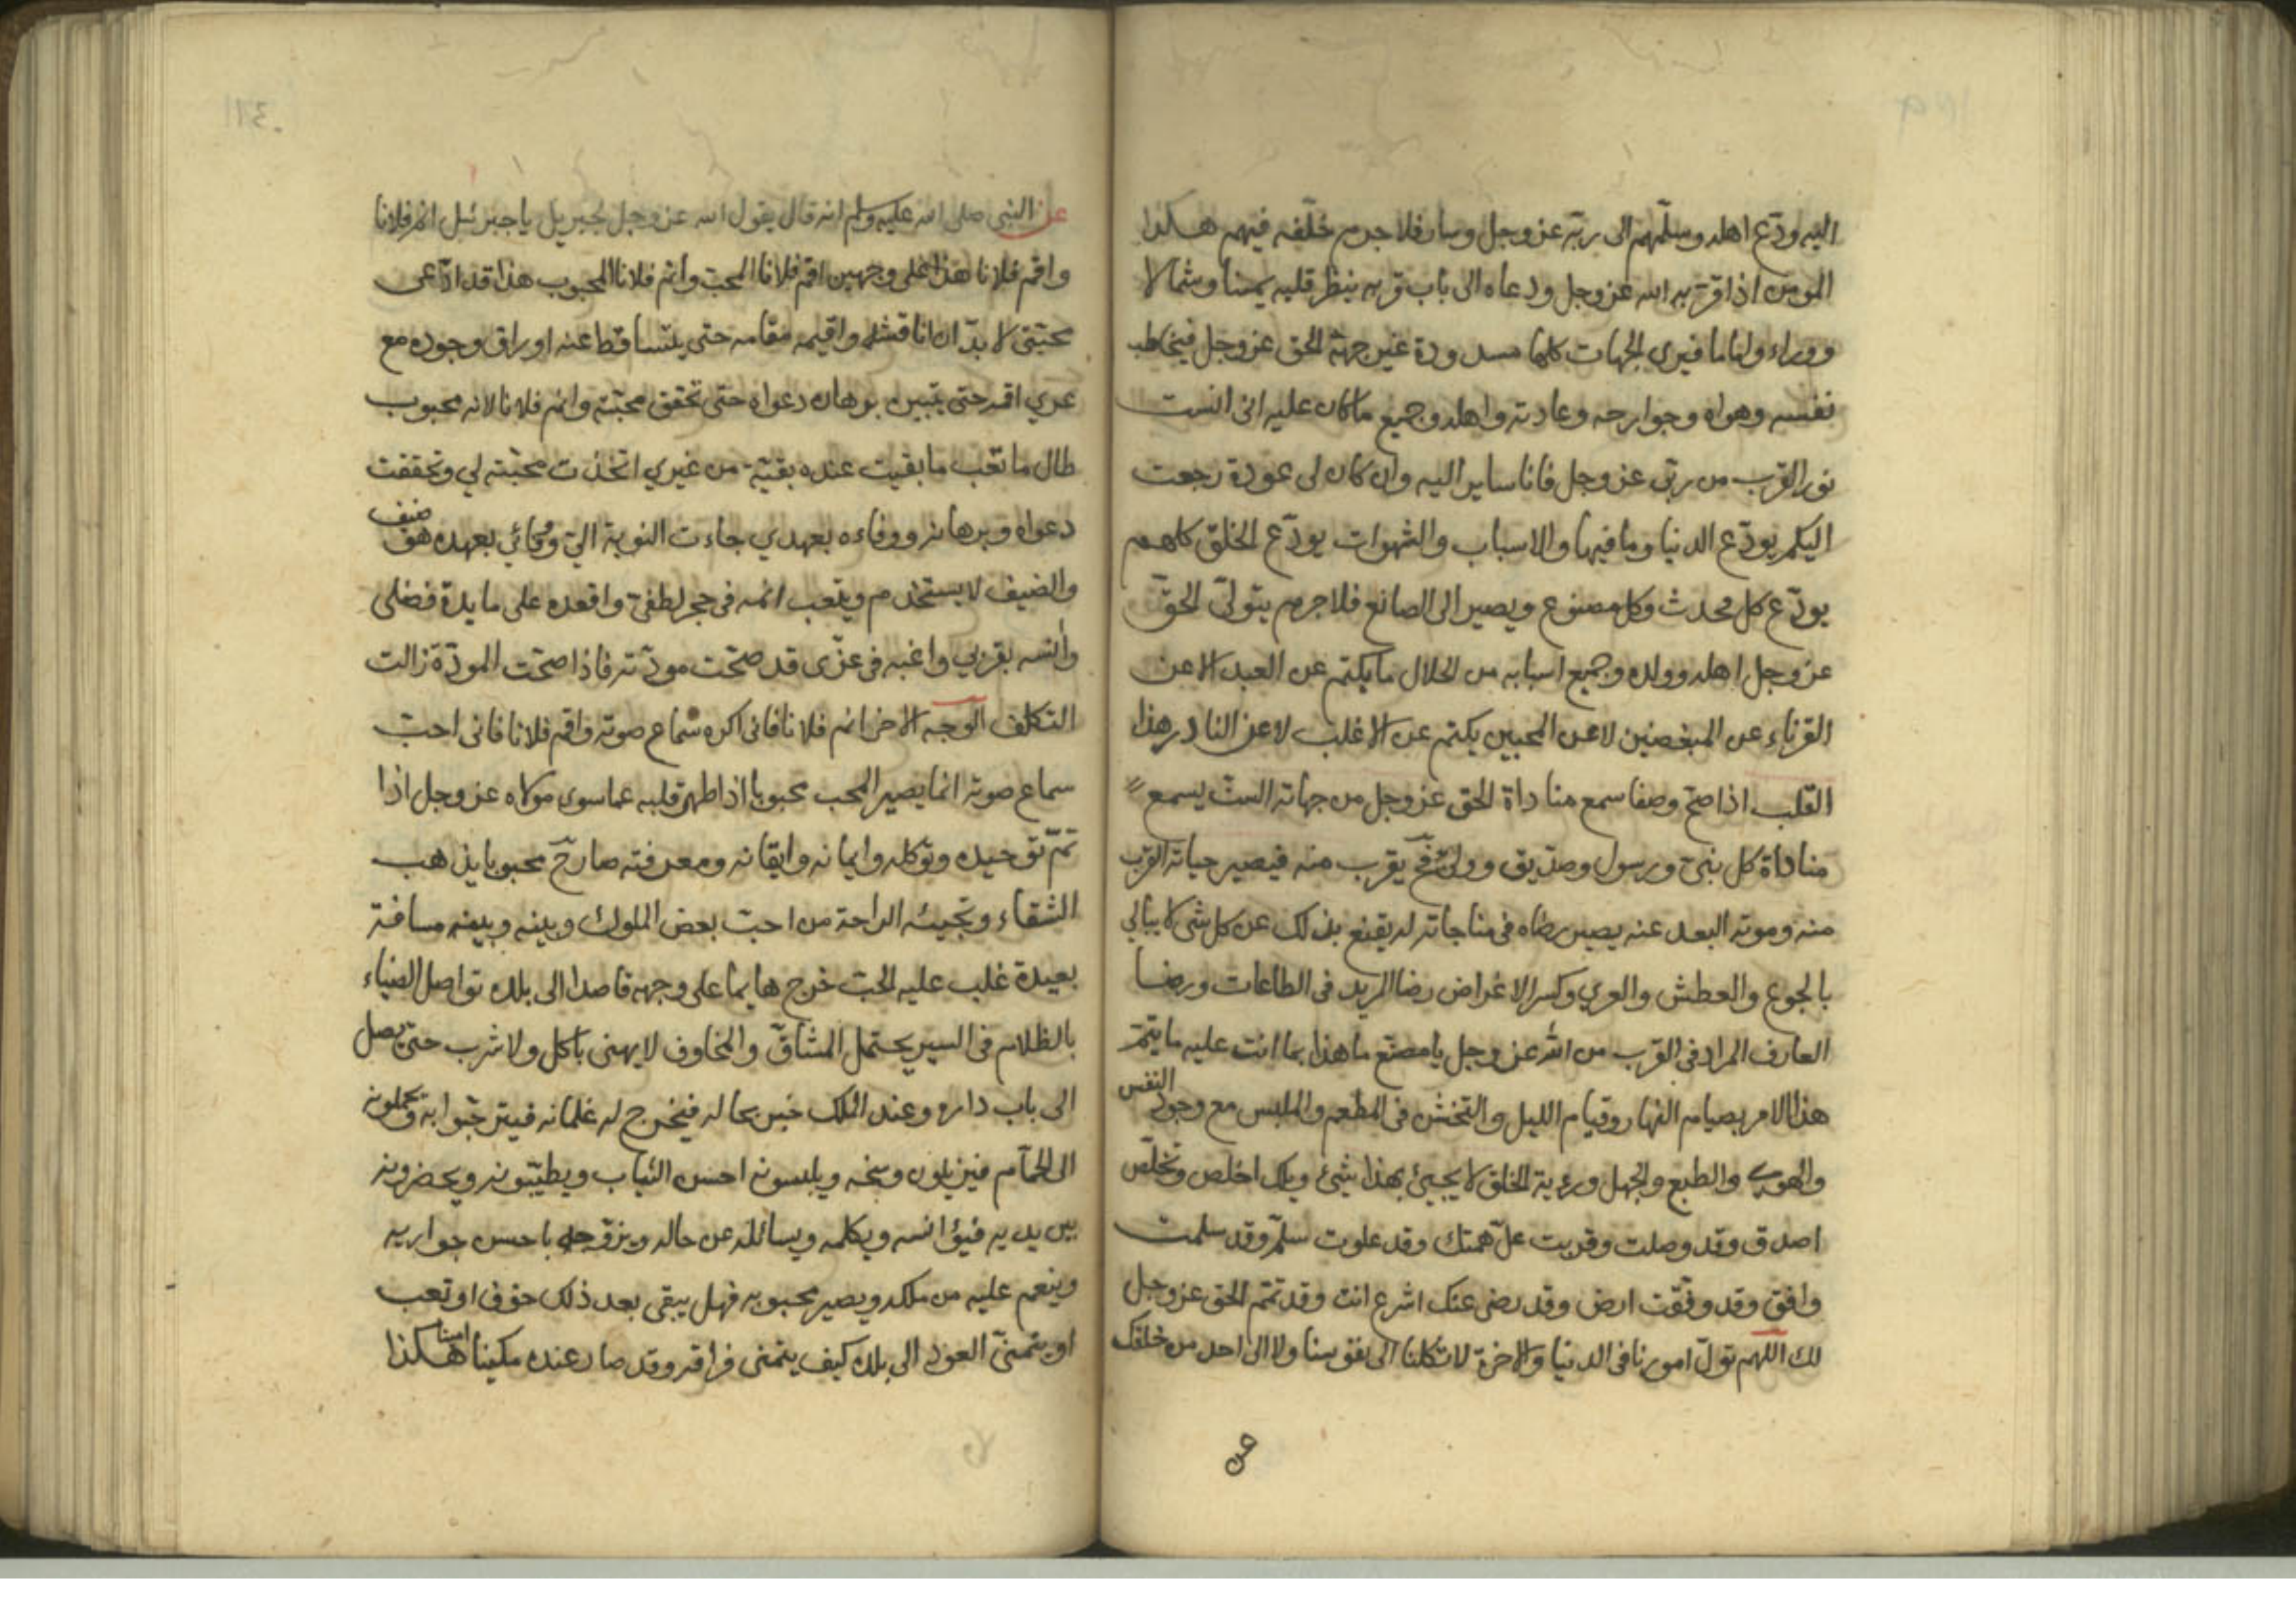 اليه ودّع اهله وسلّمهم الى ربّه عز وجل وسار فلا جرم خلّفه فيهم هكذا
المومن اذا قرّبه الله عز وجل ودعاه الى باب قربه ينظر قلبه يمينا وشمالا
ووراء واماما فيري الجهات كلها مسدودة غير جهة الحق عز وجل فيخاطب
نفسه وهواه وجوارحه وعادته واهله وجميع ماكان عليه اني انست
نور القرب من ربّي عز وجل فانا ساير اليه وان كان لي عودة رجعت
اليكم يودّع الدنيا وما فيها والاسباب والشهوات يودّع الخلق كلهم
يودّع كل محدث وكل مصنوع ويصير الى الصانع فلا جرم يتولّى الحقّ
عز وجل اهله وولده وجميع اسبابه من الحلال ما يكتم عن العبد الا عن
القرناء عن المبغضين لا عن المحبين يكتم عن الاغلب لا عن النادر هذا
القلب اذا صحّ وصفا سمع مناداة الحق عز وجل من جهاته الستّ يسمع
مناداة كل نبيّ ورسول وصدّيق ووليّ فح يقرب منه فيصير حياته القرب
منه وموته البعد عنه يصير رضاه في مناجاته له يقنع بذلك عن كل شي لا يبالي
بالجوع والعطش والعري وكسر الاغراض رضا المريد في الطاعات ورضا
العارف المراد في القرب من الله عز وجل يا مصنّع ما هذا بما انت عليه ما يتمّ
هذا الامر بصيام النهار وقيام الليل والتخشن في المطعم والملبس مع وجود النفس
والهوى والطبع والجهل ورءية الخلق لا يجيئ بهذا شيئ ويلك اخلص وتخلّص
اصدق وقد وصلت وقربت علّ همتك وقد علوت سلّم وقد سلمت
وافق وقد وفّقت ارض وقد رضى عنك اشرع انت وقد تمّم الحق عز وجل
لك اللهم تولّ امورنا في الدنيا والاخرة لا تكلنا الى نفوسنا ولا الى احد من خلقك
عن
عن النبي صلى الله عليه وسلم انه قال يقول الله عز وجل لجبريل يا جبرئيل انم فلانا
واقم فلانا هذا على وجهين اقم فلانا المحبّ وانم فلانا المحبوب هذا قد ادّعى
محبّتي لا بدّ ان اناقشه واقيمه مقامه حتى يتساقط عنه اوراق وجوده مع
غيري اقمه حتى يتبين برهان دعواه حتى تحقق محبّته وانم فلانا لانه محبوب
طال ما تعب ما بقيت عنده بقيّة من غيري اتخذت محبّته لي وتحققت
دعواه وبرهانه ووفاءه بعهدي جاءت النوبة اليّ ووفائي بعهده هو ضيف
والضيف لا يستخدم ويتعب انمه في حجر لطفي واقعده على مايدة فضلي
وانسه بقربي واغيبه في غيري قد صحّت مودّته فاذا صحّت المودّة زالت
التكلف الوجه الاخر انم فلانا فاني اكره سماع صوته واقم فلانا فاني احبّ
سماع صوته انما يصير المحب محبوبا اذا طهر قلبه عما سوى مولاه عز وجل اذا
تمّ توحيده وتوكله وايمانه وايقانه ومعرفته صار ح محبوبا يذهب
الشقاء وتجيئه الراحة من احبّ بعض الملوك وبينه وبينه مسافة
بعيدة غلب عليه الحبّ خرج هايما على وجهه قاصدا الى بلده تواصل الضياء
بالظلام في السير يحتمل المشاقّ والمخاوف لا يهنى باكل ولا شرب حتى يصل
الى باب داره وعند الملك خبر بحاله فيخرج له غلمانه فيترحّبوا به ويحملونه
الى الحمّام فيزيلون وسخه ويلبسونه احسن الثياب ويطيّبونه ويحضرونه
بين يديه فيؤانسه ويكلمه ويسائله عن حاله ويزوّجه باحسن جواريه
وينعم عليه من ملكه ويصير محبوبه فهل يبقى بعد ذلك خوف او تعب
او يتمنّى العود الى بلده كيف يتمنى فراقه وقد صار عنده مكينا امينا هكذا